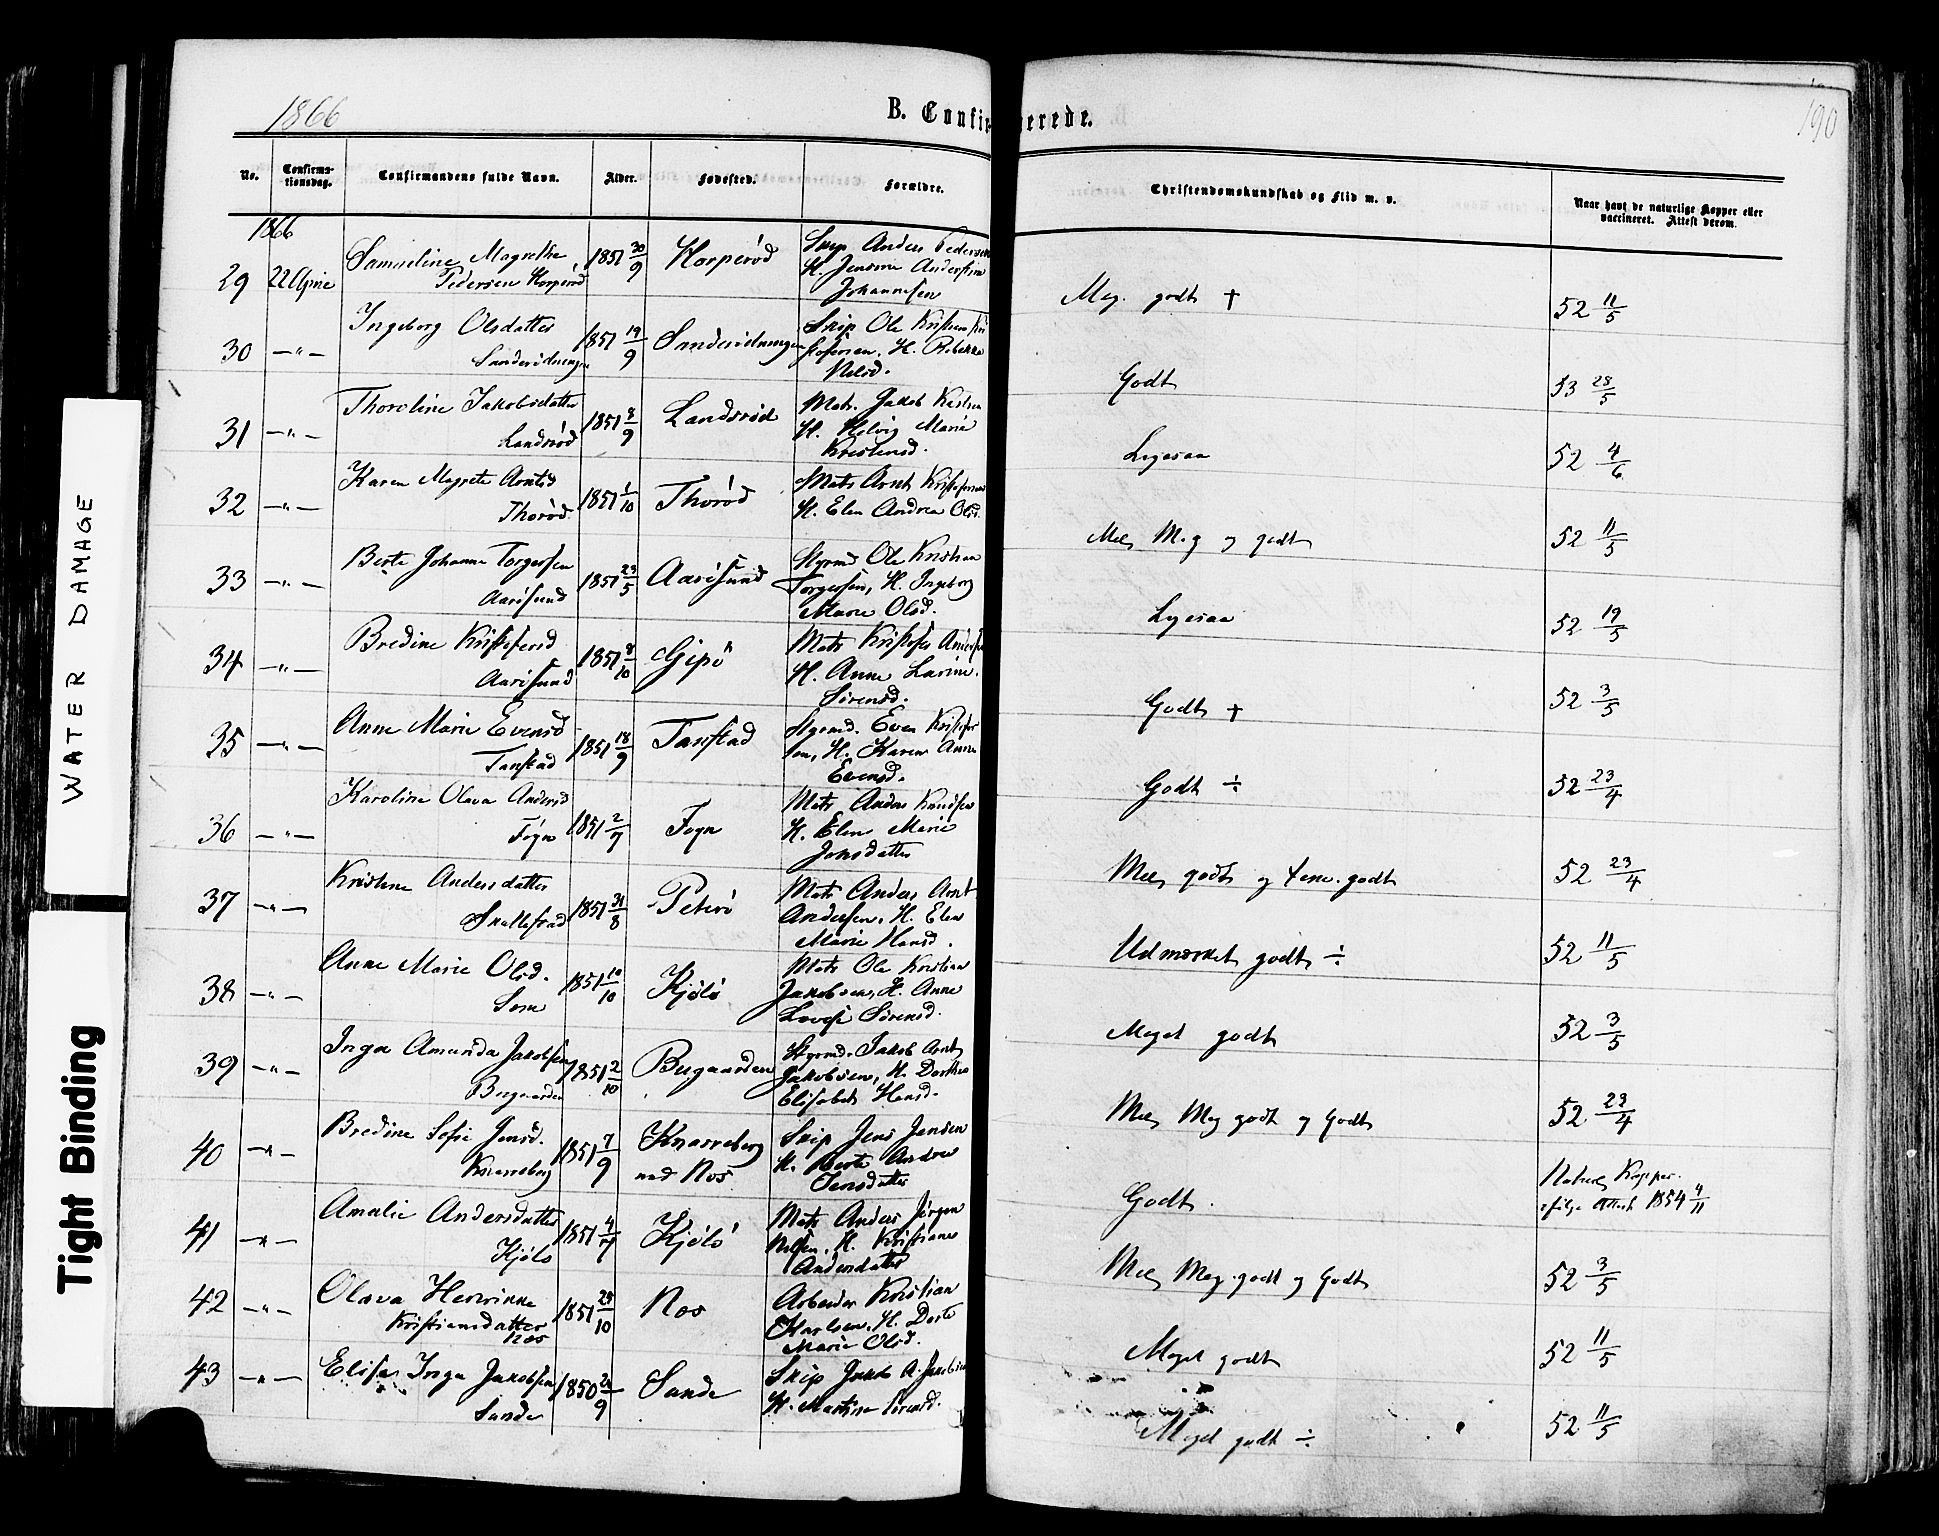 WATER DAMAGE
Tight Binding
1866
B. Confirmerede.
190
No.
Confirma-
tionsdag.
Confirmandens fulde Navn.
Alder.
Fødested.
Forældre.
Christendomskundskab og Flid m. v.
Naar havt de naturlige Kopper eller
vaccineret. Attest derom.
1866
29 22 April Samueline Magrethe
Pedersen Horperød
1851 30/9 Horperød
Skip Anders Pedersen
H. Jensine
Johannesen
Meg. godt †
52 11/5
30 —"— Ingeborg Olsdatter
Sanderidningen
1851 19/9 Sanderidningen
Skip Ole Kristian Kri
stofersen, H. Rebekka
Nelsd.
Godt
53 28/5
31 —"— Thoroline Jakobsdatter
Landsrød
1851 8/9 Landsrød
Matr. Jakob
H. Helvig Marie
Kristensd.
Lyesaa
52 4/6
32 —"— Karen Magrete Arntsd
Thorød
1851 1/10 Thorød
Matr Arnt Kristofersen
H. Elen Andrea Olsd.
Mell Meg og godt
52 11/5
33 —"— Berte Johanne Torgersen
Aarøsund
1851 23/5 Aarøsund
Styrmd Ole Kristian
Torgersen, H. Ingeborg
Marie Olsd.
Lyesaa
52 19/5
34 —"— Bredine Kristofersd
Aarøsund
1851 8/10 Gipø
Matr Kristofer Anders
H. Anne Larine
Sørensd.
Godt †
52 3/5
35 —"— Anne Marie Evensd
Tanstad
1851 18/9 Tanstad
Styrmd. Even Kristofer
sen, H. Karen Anne
Evensd.
Godt ÷
52 23/4
36 —"— Karoline Olava Andersd
Føyn
1851 2/7 Føyn
Matr Anders Knudsen
H. Elen Marie
Jensdatter
Mell godt og godt
52 23/4
37 —"— Kristine Andersdatter
Skallestad
1851 31/8 Peterø
Matr Anders Arnt
Andersen, H. Elen
Marie Hansd.
Udmærket godt ÷
52 11/5
38 —"— Anne Marie Olsd.
Sem
1851 10/10 Kjøløˊ
Matr Ole Kristian
Jakobsen, H. Anne
Lovise Sørensd.
Meget godt
52 3/5
39 —"— Inga Amanda Jakobsen
Bugaarden
1851 2/10 Bugaarden
Styrmd. Jakob Arnt
Jakobsen, H. Dorthea
Elisabet Hansd.
Mell Meg godt og Godt
52 23/4
40 —"— Bredine Sofie Jensd.
Knarreberg
1851 7/9 Knarreberg
ned Nes
Skip Jens Jensen
H. Berte Andrea
Jensdatter
Godt.
Naturl Kopper
ifølge Attest 1854 4/11
41 —"— Amalie Andersdatter
Kjøløˊ
1851 4/7 Kjøløˊ
Matr Anders Jørgen
Nelsen, H. Kristiane
Andersdatter
Mell Meg. godt og Godt
52 3/5
42 —"— Olava Henrikke
Kristiansdatter
Nes
1851 28/10 Nes
Arbeider Kristian
Karlsen, H. Dorte
Marie Olsd.
Meget godt
52 11/5
43 —"— Elise Inga Jakobsen
Sande
1850 /9 Sande
Skip Jakob A. Jakobsen
H. Martine Sørensd.
Meget godt ÷
52 11/5